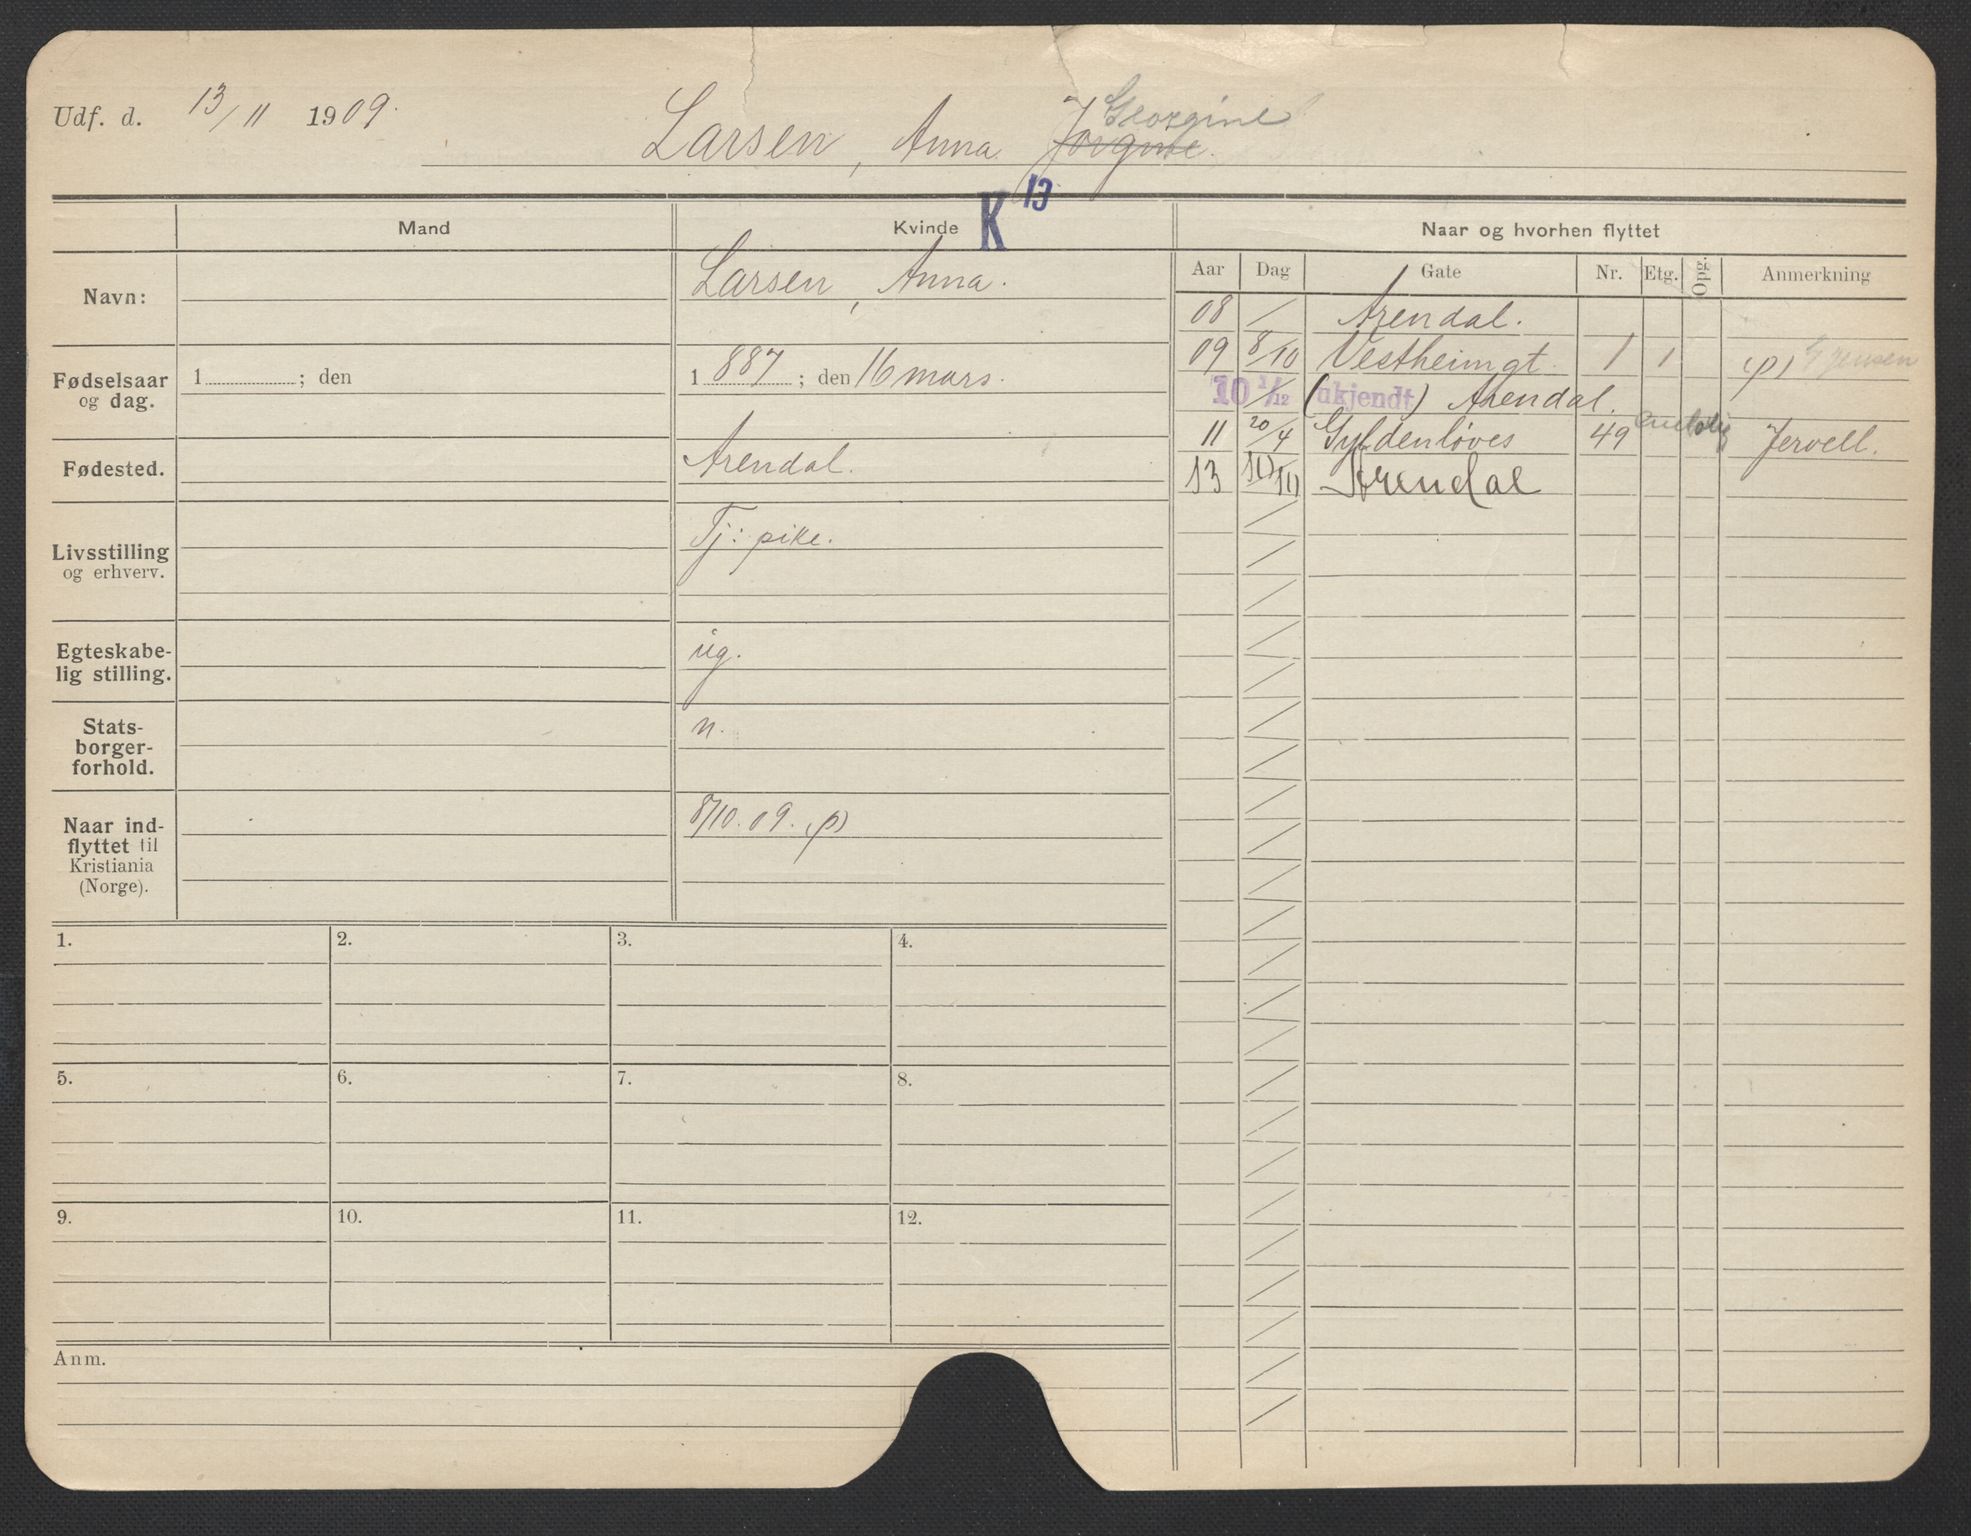 Udf. d. 13/11 1909.
Georgine
Larsen, Anna Jorgine.
K 13
Mand Kvinde Naar og hvorhen flyttet
Aar Dag Gate Nr. Etg. Opg. Anmerkning
Navn: Larsen, Anna.
Fødselsaar og dag. 1 ; den 1887 ; den 16 mars.
Fødested. Arendal.
Livsstilling og erhverv. Tj: pike.
Egteskabelig stilling. ug.
Statsborgerforhold. n.
Naar indflyttet til Kristiania (Norge). 8/10.09. (p)
08 / Arendal.
09 8/10 Vestheimgt. 1 1 (p) Jensen
10 1/12 (ukjendt) Arendal.
11 20/4 Gyldenløves 49 Jervell.
13 10/10 Arendal
1. 2. 3. 4.
5. 6. 7. 8.
9. 10. 11. 12.
Anm.